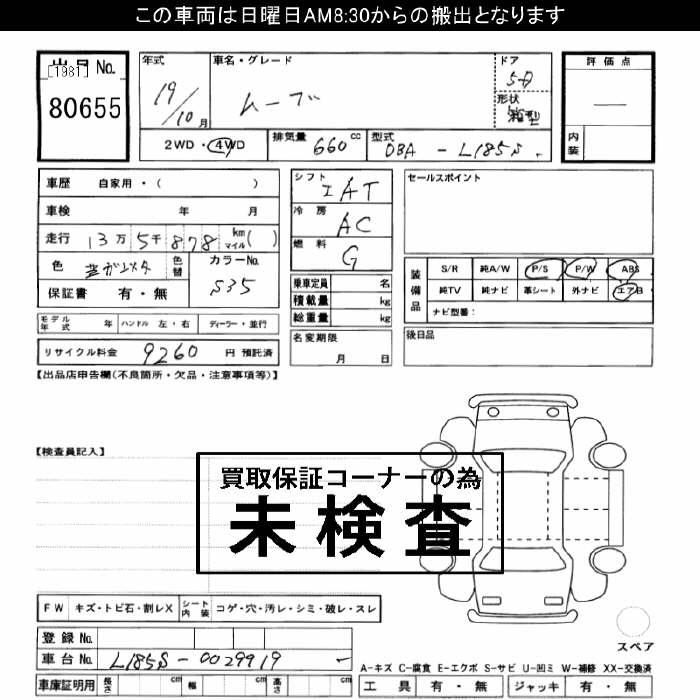 この車両は日曜日AM8:30からの搬出となります
出品 No.
[1981]
80655
年式
19/10月
車名・グレード
ムーブ
ドア
5D
形状
箱型
2WD・4WD
排気量 660 cc
型式 DBA - L185S
評価点
―
内装
車歴 自家用・( )
車検 年 月
走行 13万 5千 878 km マイル ( )
色
色替
カラーNo.
S35
保証書 有・無
シフト IAT
冷房 AC
燃料 G
乗車定員 名
積載量 kg
総重量 kg
セールスポイント
装備品
S/R 純A/W P/S P/W ABS
純TV 純ナビ 革シート 外ナビ エアB
ナビ型番:
モデル年式 年 ハンドル 左・右 ディーラー・並行
リサイクル料金 9260 円 預託済
名変期限
月 日
後日品
【出品店申告欄(不良箇所・欠品・注意事項等)】
【検査員記入】
買取保証コーナーの為
未検査
FW キズ・トビ石・割レX
シート内装 コゲ・穴・汚レ・シミ・破レ・スレ
スペア
登録 No.
車台 No. L185S-0029919
A-キズ C-腐食 E-エクボ S-サビ U-凹ミ W-補修 XX-交換済
車庫証明用 長さ cm 幅 cm 高さ cm
工具 有・無 ジャッキ 有・無